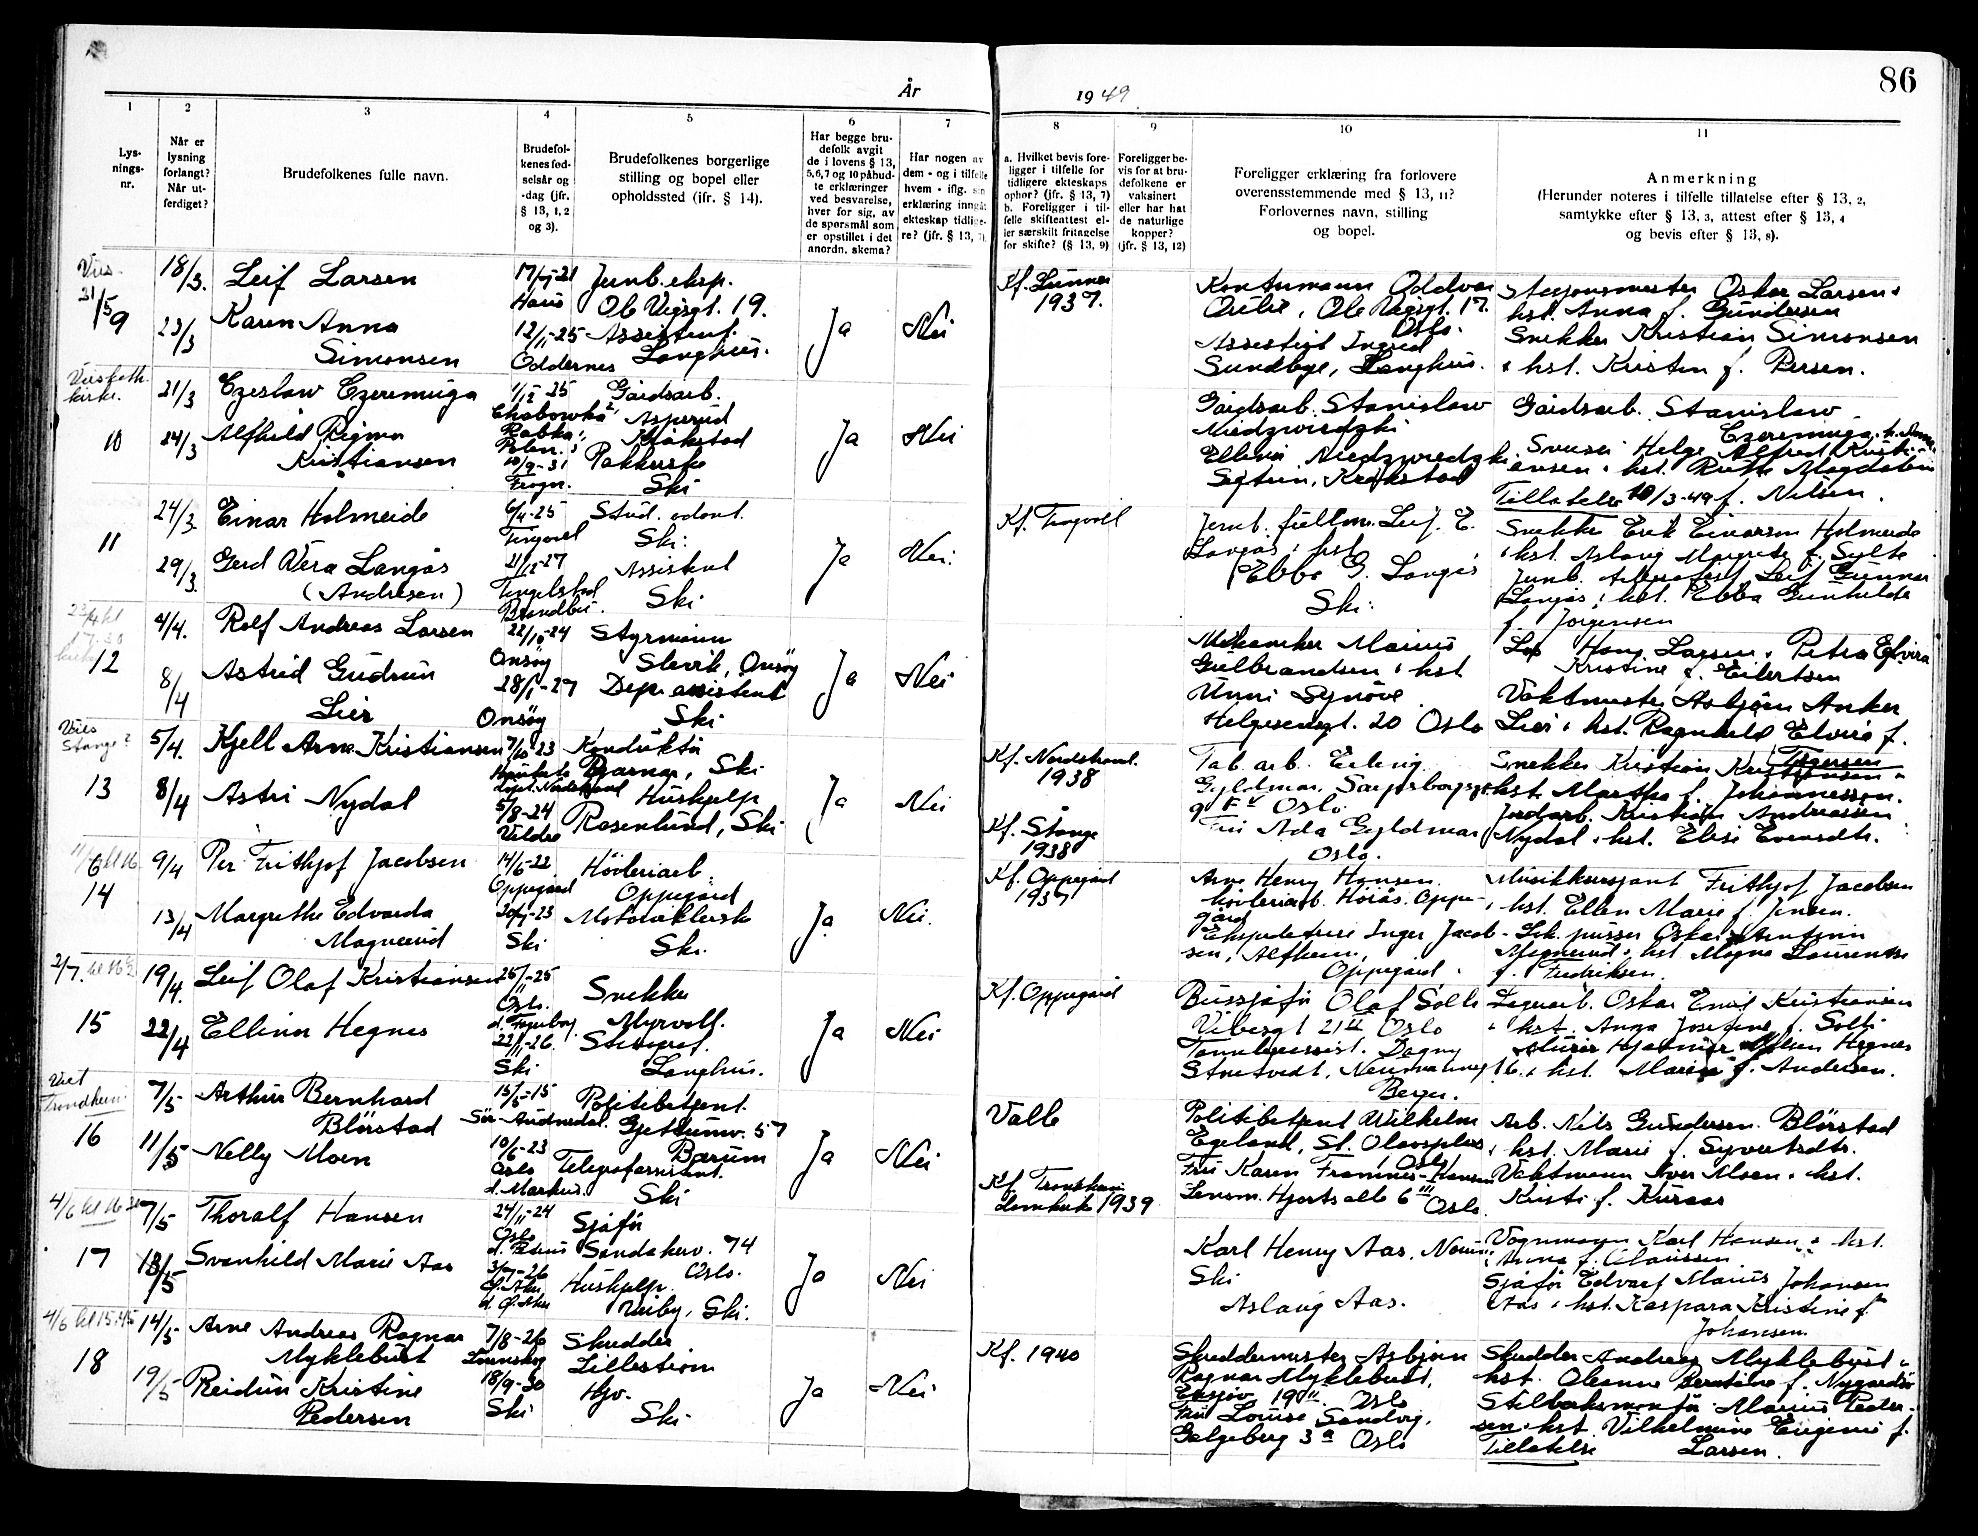 86
År
1949.
1
2
3
4
5
6
7
8
9
10
11
Lys-
nings-
nr.
Når er
lysning
forlangt?
Når ut-
ferdiget?
Brudefolkenes fulle navn.
Brudefol-
kenes fød-
selsår og
-dag (jfr.
§ 13, 1, 2
og 3).
Brudefolkenes borgerlige
stilling og bopel eller
opholdssted (jfr. § 14).
Har begge bru-
defolk avgit
de i lovens § 13,
5,6,7 og 10 påbud-
te erklæringer
ved besvarelse,
hver for sig, av
de spørsmål som
er opstillet i det
anordn. skema?
Har nogen av
dem - og i tilfelle
hvem - iflg. sin
erklæring inngåt
ekteskap tidlige-
re? (jfr. § 13, 7)
a. Hvilket bevis fore-
ligger i tilfelle for
tidligere ekteskaps
ophør? (jfr. § 13, 7)
b. Foreligger i til-
felle skifteattest el-
ler særskilt fritagelse
for skifte? (§ 13, 9)
Foreligger be-
vis for at bru-
defolkene er
vaksinert
eller har hat
de naturlige
kopper?
(jfr. § 13, 12)
Foreligger erklæring fra forlovere
overensstemmende med § 13, 11?
Forlovernes navn, stilling
og bopel.
Anmerkning
(Herunder noteres i tilfelle tillatelse efter § 13, 2,
samtykke efter § 13, 3, attest efter § 13, 4
og bevis efter § 13, 8).
31/5
9
18/3.
23/3
Leif Larsen
Karen Anna
Simonsen
12/11-25
Oddernes
Jernb. eksp.
Ole Vigsgt. 19.
Assistent.
Langhus.
Ja
Nei
Kf. Lunner
1937.
Kontormann Oddvar
Ole Vigsgt. 17.
Oslo.
Assistent Ingrid
Sundbye, Langhus.
Stasjonsmester Oskar Larsen
hst. Anna f. Gundersen
Snekker Kristian Simonsen
hst. Kristin f. Persen.
kirke.
10
21/3
24/3
Czeslaw Czeremuga
Alfhild Rigmor
Kristiansen
Rabka
Polen
10/9-31
Frogn.
Gårdsarb.
Asperud
Kråkstad
Pakkerske
Ski
Ja
Nei
Gårdsarb. Stanislaw
Niedzwiedzki
Ellen Niedzwiedzki
Kråkstad
Gårdsarb. Stanislaw
Czeremuga
Helge Alfred Kristi-
ansen hst. Ruth Magdalene
Tillatelse 10/3-49 f. Nilsen.
11
24/3
29/3.
Einar Holmeide
Gerd Vera Langås
(Andresen)
6/4-25
Tingvoll
21/12-27
Tingelstad
Brandbu.
Stud. odont.
Ski.
Assistent
Ski
Ja
Nei.
Kf. Tingvoll
Jernb. fullm. Leif. E.
Langås hst
Ebba G. Langås
Ski.
Snekker Erik Einarsen Holmeide
hst. Aslaug Margrete f. Sylte
Jernb. telegrafist Leif Gunnar
Langås hst. Ebba Gunhilde
f. Jørgensen
12
4/4.
8/4
Rolf Andreas Larsen
Astrid Gudrun
Lier
22/10-24
Onsøy
28/1-27
Onsøy
Styrmann
Slevik, Onsøy
Dep. assistent
Ski
Ja
Nei
Mekaniker Marius
Gulbrandsen hst
Unni Synøve
Helgesensgt. 20 Oslo
Los Hans Larsen Petra Elvira
Kristine f. Eilertsen
Vaktmester Asbjørn Anker
Lier hst. Ragnhild Elvire f.
Tagersen
Viet
Stange?
13
5/4.
8/4
Kjell Arne Kristiansen
Astri Nydal
7/10-23
5/8-24
Veldre
Konduktør
Bjarnar, Ski
Hushjelp
Rosenlund, Ski
Ja
Nei
Kf. Nordstrand.
1938
Kf. Stange
1938
Tab. arb. Erling
Gyldmar, Sarpsborggt.
9 IV Oslo.
Fru Ada Gyldmar
Oslo.
Snekker Kristian Kristiansen
hst. Martha f. Johannessen.
Jordarb. Kristian Andreassen
Nydal hst. Elise Evensdtr.
14
9/4
13/4
Per Frithjof Jacobsen
Margrethe Edvarda
Magnerud
14/6-22.
Oppegård
Ski
Høvleriarb.
Oppegård
Ski.
Ja
Nei.
Kf. Oppegård
1937
Arne Henry Hansen
høvleriarb. Høiås. Oppe-
gård
Ekspeditrise Inger Jacob-
sen, Alfheim,
Oppegård.
Musikksersjant Frithjof Jacobsen
hst. Ellen Marie f. Jensen.
Lok. pusser Oskar Antonin
Magnerud hst Magna Laurentse
f. Fredriksen.
2/7.
15
19/4.
22/4
Leif Olaf Kristiansen
Ellinor Hegnes
Oslo.
Ski
Snekker
Myrvoll.
Stenograf.
Langhus.
Ja
Nei
Kf. Oppegård
Bussjåfør Olaf Solli
Vibesgt 21 II Oslo
Tannlegeassist. Dagny
Bergen.
Lagerarb. Oskar Emil Kristiansen
hst. Anna Josefine f. Solli
Murer Hjalmar Hegnes
hst. Marie f. Andersen.
Viet
Trondheim.
16
7/5
11/5
Arthur Bernhard
Blørstad
Nelly Moen
15/6-15
Sør-Audnedal.
10/6-23
Oslo
d. Markus.
Politibetjent.
Gjettumv. 57
Bærum
Telegrafassistent.
Ski
Ja
Nei
Valle
Kf. Trondheim
domkirke 1939
Politibetjent Wilhelm
Egeland, St. Olavsplass
Oslo
Fru Karen Framnes-Hansen
Lensm. Hjortsalle 6 III
Oslo.
Arb. Nils Gundersen Blørstad
hst. Marie f. Syvertsdtr.
Vaktmann Iver Moen hst.
Kristi f. Kuraas
17
7/5
18/5
Thoralf Hansen
Svanhild Marie Aas
24/11-24
Oslo
d. Petrus
Sjåfør
Sandakerv. 74
Oslo.
Hushjelp.
Ski.
Ja
Nei
Karl Henry Aas,
Ski
Aslaug Aas.
Vognmann Karl Hansen hst.
Anna f. Claussen
Sjåfør Edvard Marius Johansen
Aas hst. Kaspara Kristine f.
Johansen.
4/6 kl 15.45
18
14/5
19/5
Arne Andreas Ragnar
Myklebust
Reidun Kristine
Pedersen
7/8-26
18/9-30
Ski
Skredder
Lillestrøm
Hjv.
Ski
Ja
Nei
Kf. 1940
Skreddermester Asbjørn
Ragnar Myklebust,
Ensjøv. 19 II. Oslo
Fru Louise Sandvig,
Galgeberg 3 a Oslo
Skredder Andreas Myklebust
hst. Oleanne Berntine f. Nygårdsv
Marius Peder-
sen hst. Vilhelmine Eugenie f.
Tillatelse Larsen.